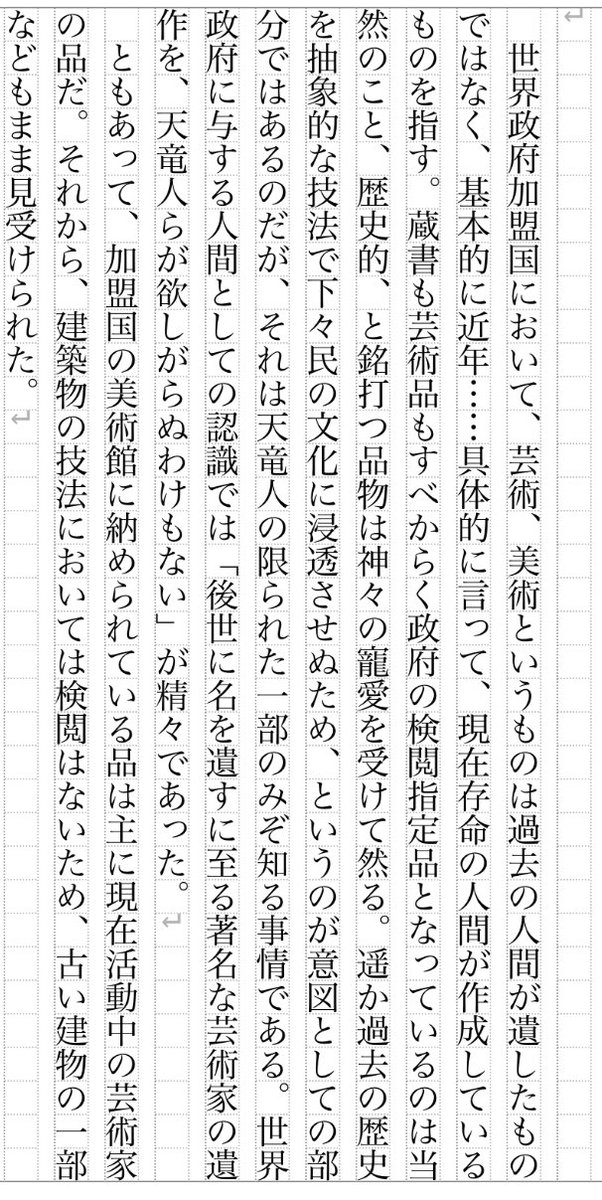 世界政府加盟国において、芸術、美術というものは過去の人間が遺したもの
ではなく、基本的に近年……具体的に言って、現在存命の人間が作成している
ものを指す。蔵書も芸術品もすべからく政府の検閲指定品となっているのは当
然のこと、歴史的、と銘打つ品物は神々の寵愛を受けて然る。遥か過去の歴史
を抽象的な技法で下々民の文化に浸透させぬため、というのが意図としての部
分ではあるのだが、それは天竜人の限られた一部のみぞ知る事情である。世界
政府に与する人間としての認識では「後世に名を遺すに至る著名な芸術家の遺
作を、天竜人らが欲しがらぬわけもない」が精々であった。
ともあって、加盟国の美術館に納められている品は主に現在活動中の芸術家
の品だ。それから、建築物の技法においては検閲はないため、古い建物の一部
などもまま見受けられた。